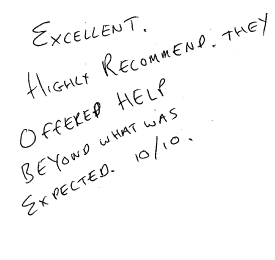 EXCELLENT.
HIGHLY RECOMMEND. THEY
OFFERED HELP
BEYOND WHAT WAS
EXPECTED. 10/10.